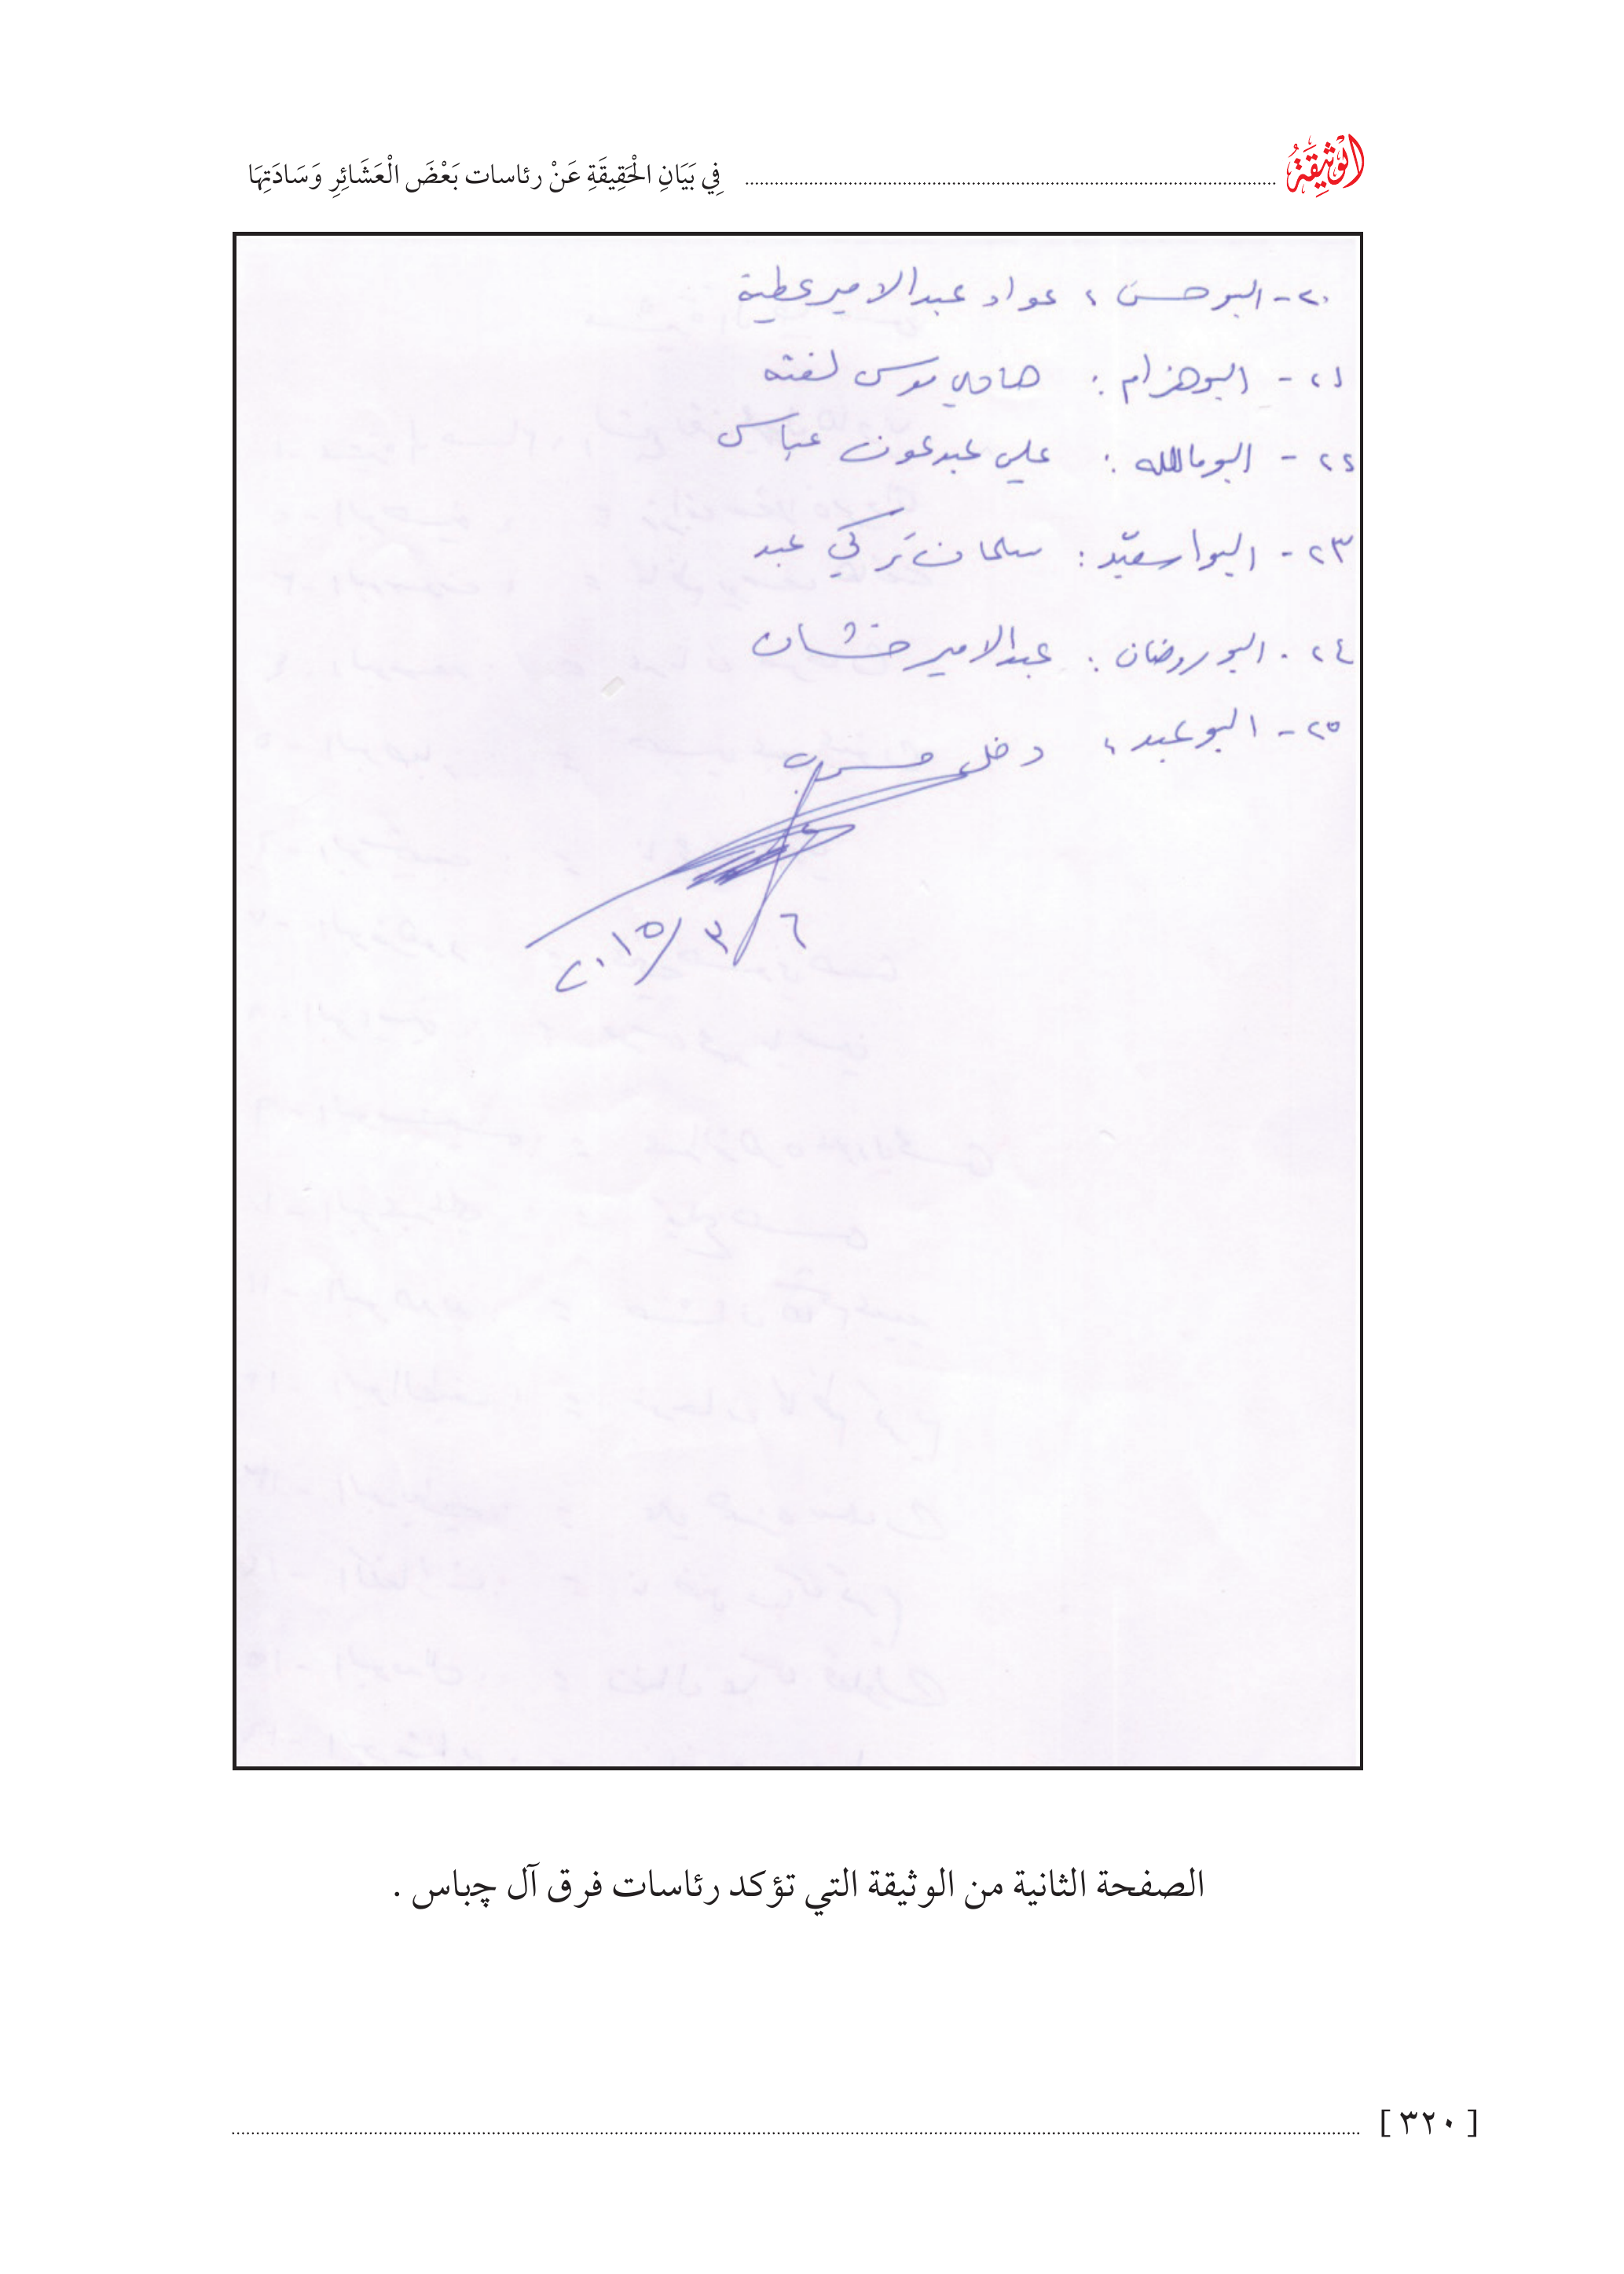 الْوَثِيقَةُ
فِي بَيَانِ الْحَقِيقَةِ عَنْ رئاسات بَعْضَ الْعَشَائِرِ وَسَادَتِهَا
٢٠- البوحسن : عواد عبدالامير عطية
٢١- البوهزام : هادي موسى لفته
٢٢- البومالله : علي عبدعون عباس
٢٣- البواسعيّد : سلمان تركي عبد
٢٤- البورمضان : عبدالامير خشان
٢٥- البوعبد : دخل
٦/٣/٢٠١٥
الصفحة الثانية من الوثيقة التي تؤكد رئاسات فرق آل چباس .
[ ٣٢٠ ]